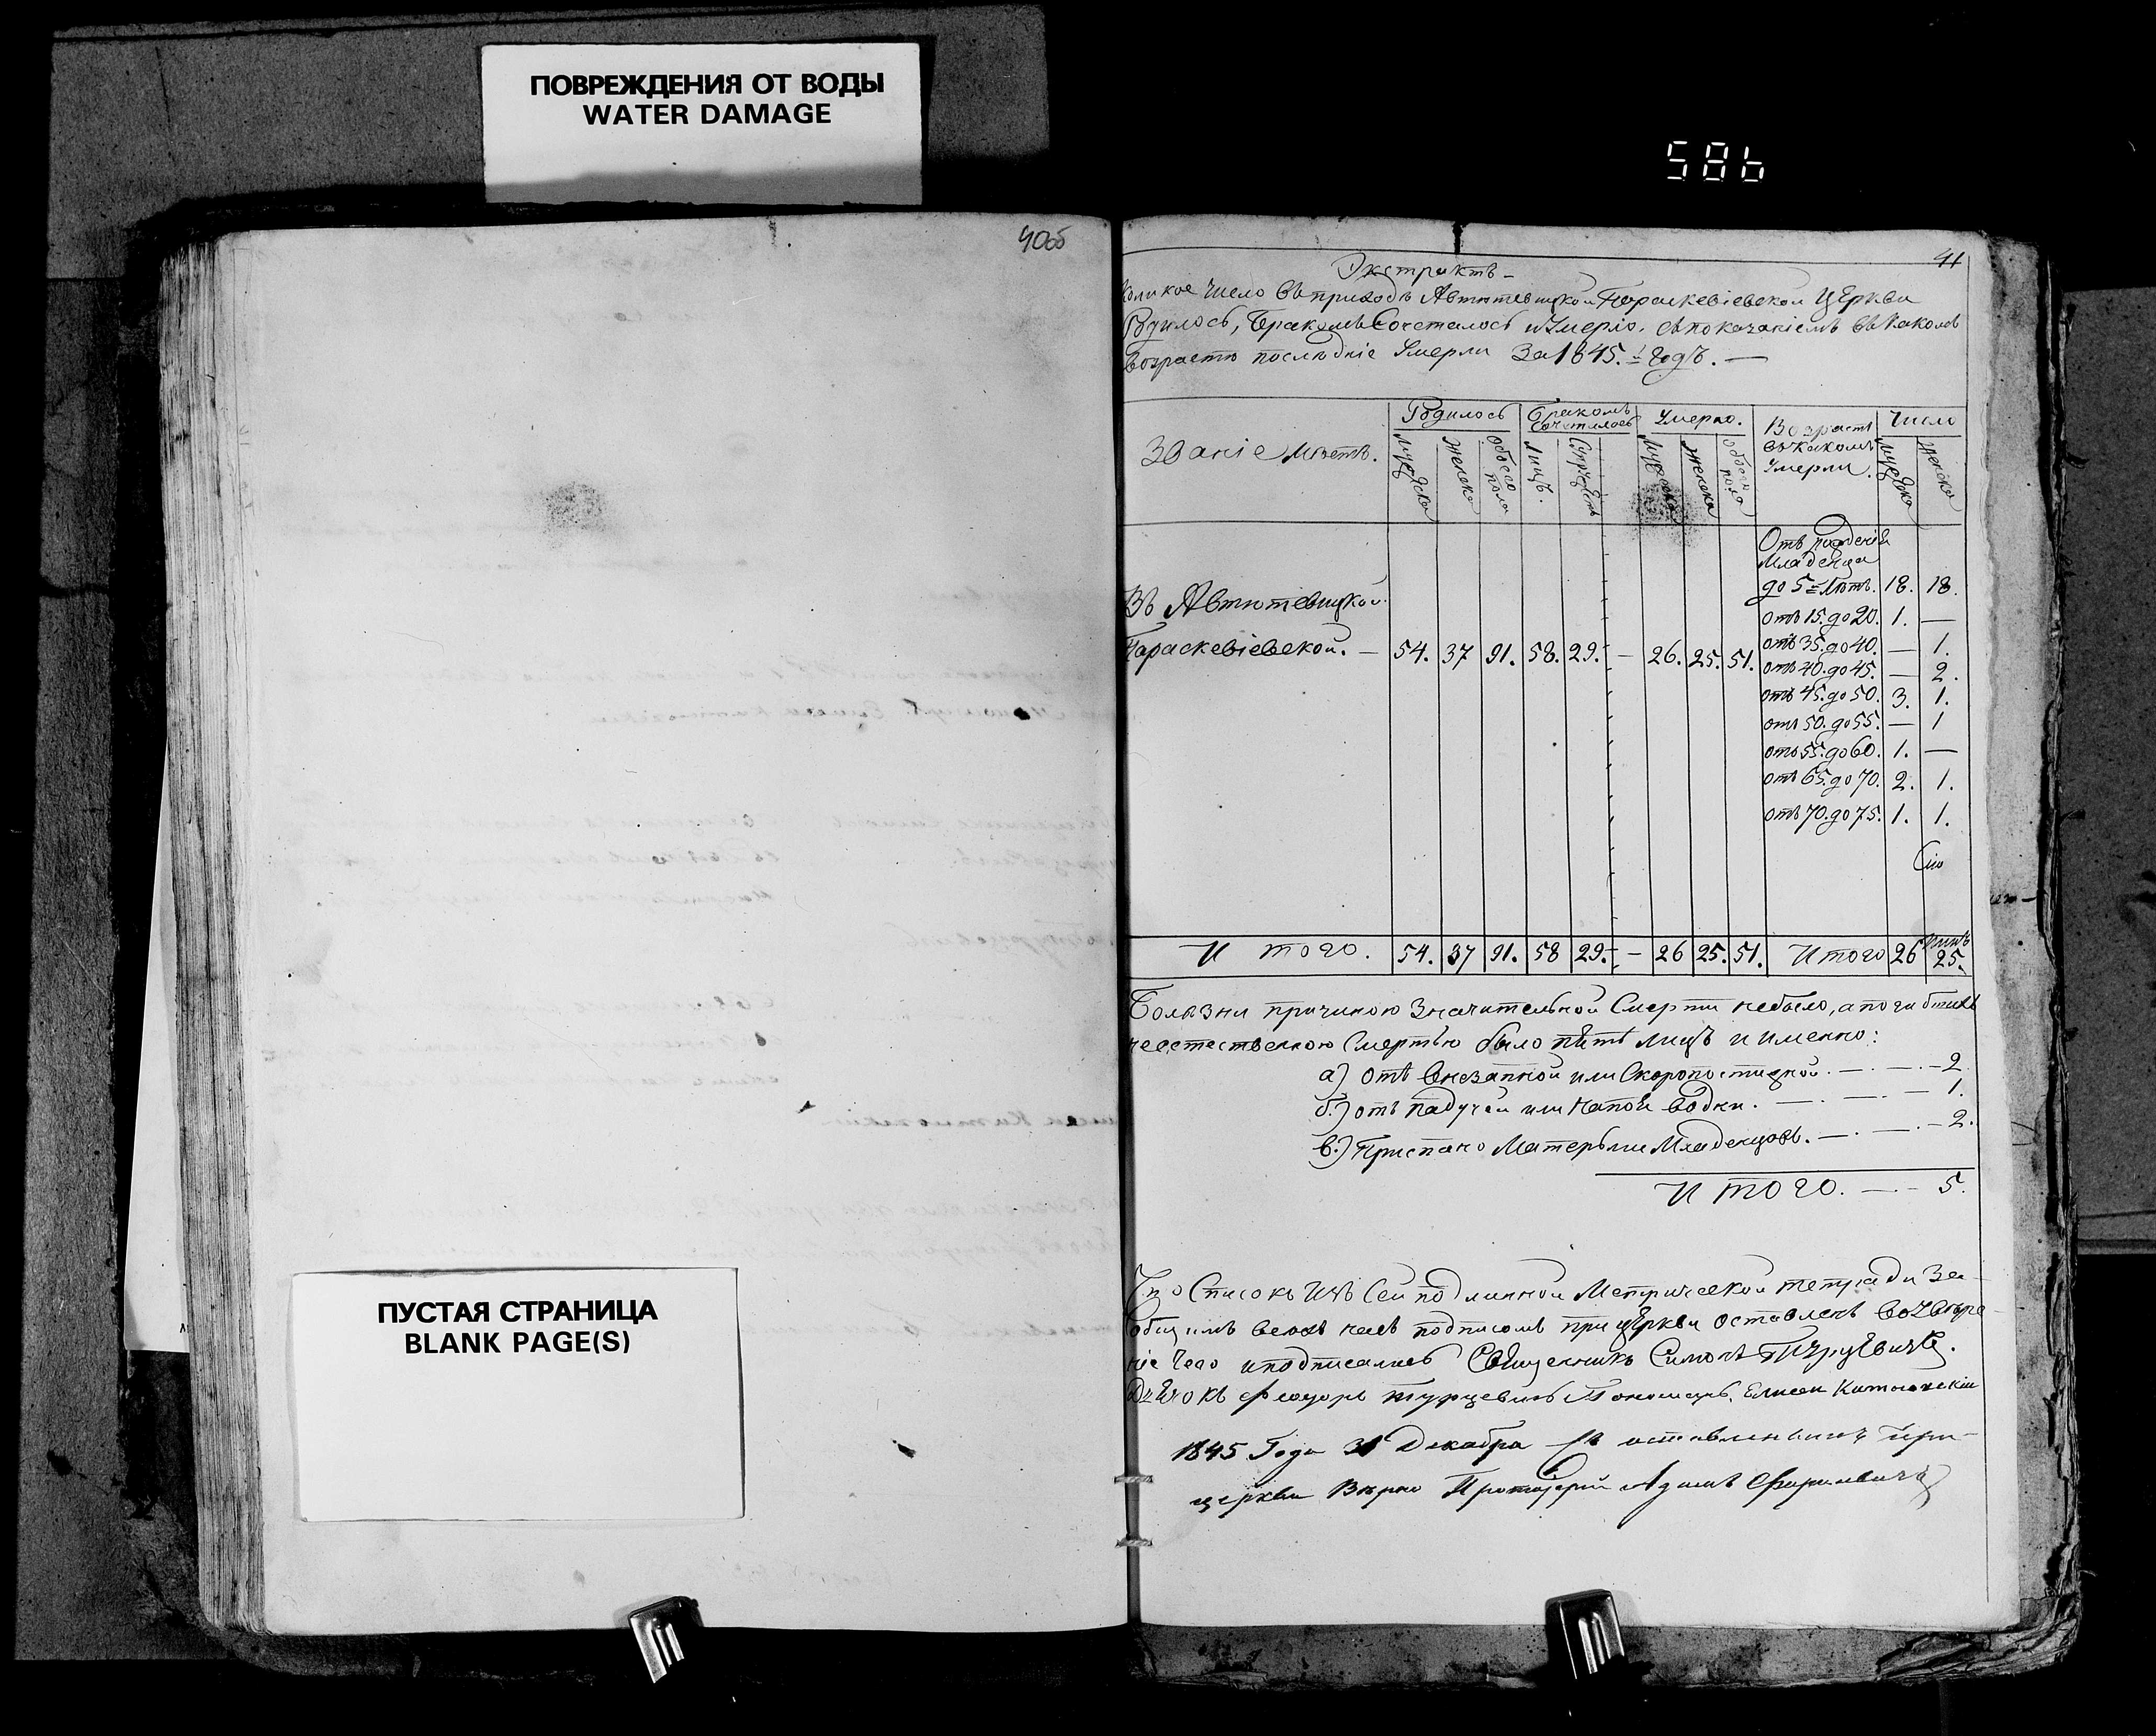 ПОВРЕЖДЕНИЯ ОТ ВОДЫ
WATER DAMAGE
586
40об
ПУСТАЯ СТРАНИЦА
BLANK PAGE(S)
41
Экстрактъ
Коликое число въ приходѣ Автютевицкой Параскевіевской Церкви
Родилось, Бракомъ Сочеталось и Умерло, съ показаніемъ въ каком
возрастѣ послѣдніе Умерли За 1845. й годъ. —
Званіе мѣстъ.
Родилось
Бракомъ сочеталось
Умерло.
Возрастъ въ какомъ Умерли.
Число
Мужеска
Женска
Обоего пола
Лицъ.
Супружествъ
Мужеска
Женска
Обоего пола
Мужеска
Женска
Отъ рожденія
Младенца
до 5 = лѣтъ. 18. 18.
отъ 15. до 20. 1. —
отъ 35. до 40. — 1.
отъ 40. до 45. — 2.
отъ 45. до 50. 3. 1.
отъ 50. до 55. — 1
отъ 55. до 60. 1. —
отъ 65. до 70. 2. 1.
отъ 70. до 75. 1. 1.
Въ Автютевицкой
Параскевіевской. — 54. 37 91. 58. 29. — 26. 25. 51.
И того. 54. 37 91. 58 29. — 26 25. 51. Итого 26 25.
Болѣзни причиною значительной Смерти небыло, а погибшихъ
неестественною Смертью было пять лицъ и именно:
а) отъ внезапной или Скоропостижной. — . — . — 2
б.) отъ падучей или напоя водки. — . — . — 1.
в.) Приспано Матерьми Младенцовъ. — . — . — 2.
И того. — . — 5.
Что Списокъ Изъ Сей подлинной Метрической тетради За
общимъ всехъ насъ подписомъ при Церкви оставленъ Во Увѣре-
ніе Чего и подписались Священникъ Симонъ
Дьячокъ Феодоръ Турцевичъ Пономарь Елисей
1845 Года 31 Декабря Съ оставленнымъ при
церкви Вѣрно Протоіерей Адамъ